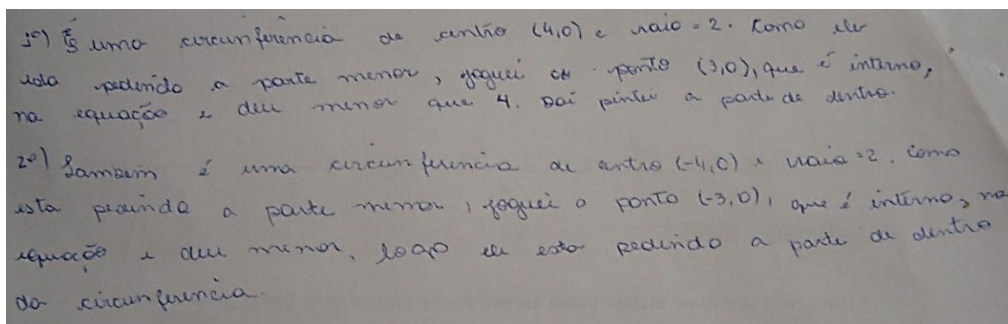 1º) É uma circunferência de centro (4,0) e raio = 2. Como ele
esta pedindo a parte menor, joguei o ponto (3,0), que é interno,
na equação e deu menor que 4. Daí pintei a parte de dentro.
2º) Também é uma circunferencia de centro (-4,0) e raio = 2. Como
esta pedindo a parte menor, joguei o ponto (-3,0), que é interno, na
equação e deu menor, logo ele esta pedindo a parte de dentro
da circunferencia.